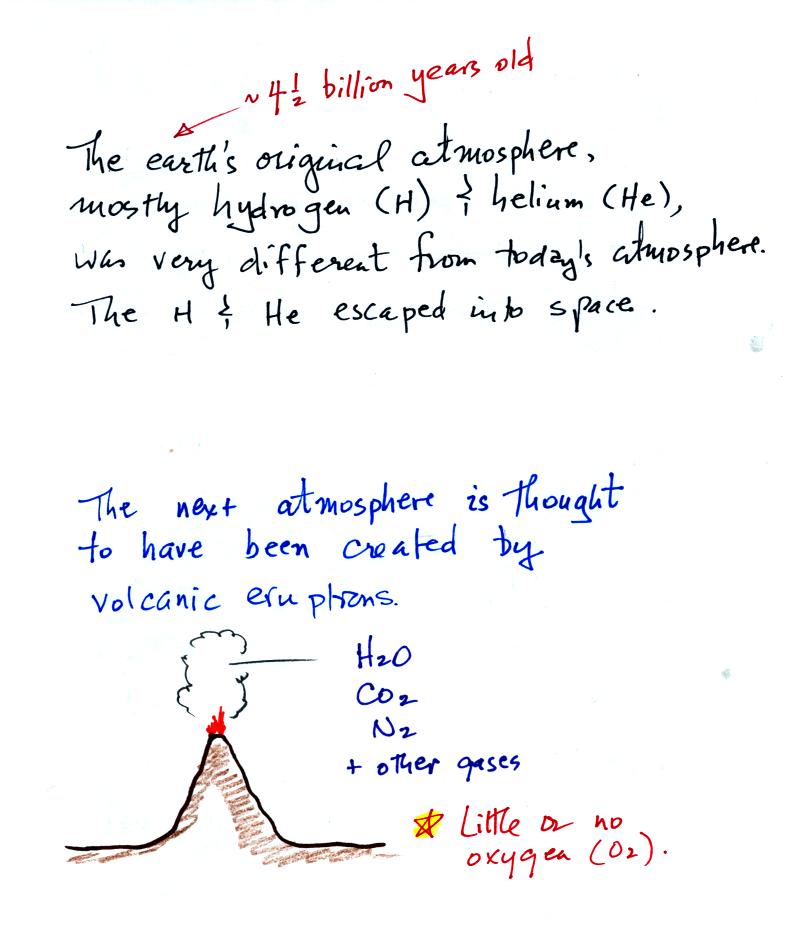 ~4½ billion years old
The earth's original atmosphere,
mostly hydrogen (H) & helium (He),
was very different from today's atmosphere.
The H & He escaped into space.
The next atmosphere is thought
to have been created by
volcanic eruptions.
H₂O
CO₂
N₂
+ other gases
Little or no
oxygen (O₂).